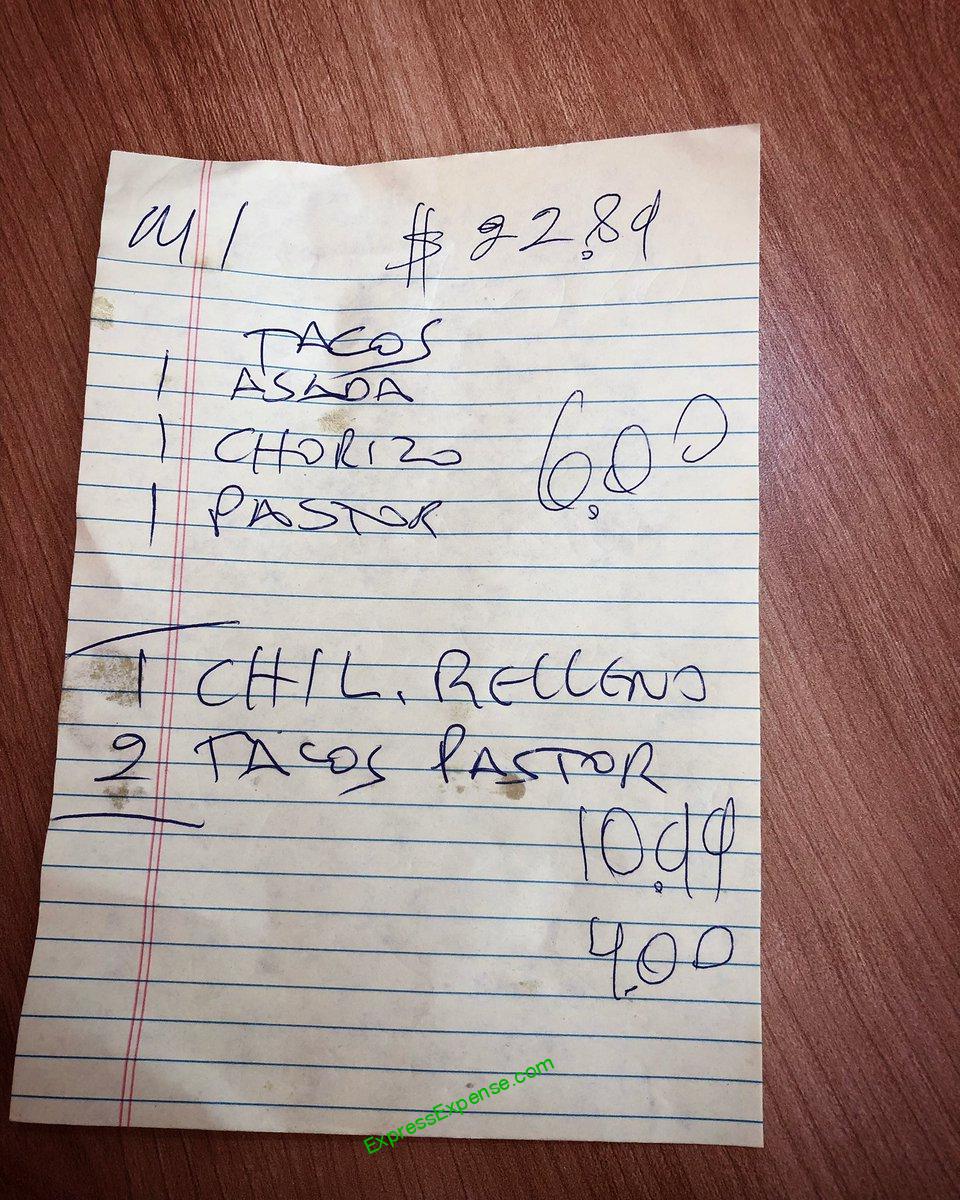 M1 $22.89
TACOS
1 ASADA
1 CHORIZO 6.00
1 PASTOR
1 CHIL. RELLENO
2 TACOS PASTOR
10.99
4.00
ExpressExpense.com